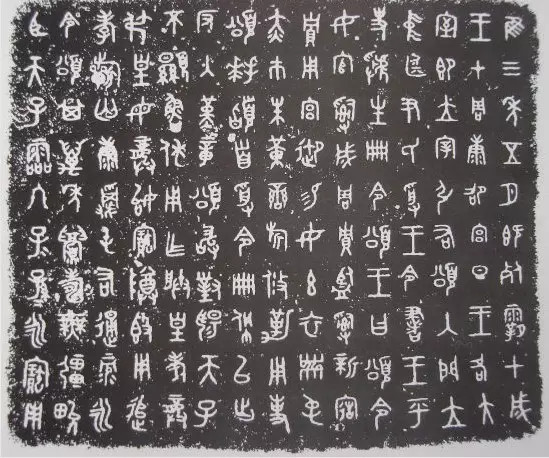 隹三年五月既死霸甲戌
王才周康卲宮旦王各大
室即立宰引右頌入門立
中廷尹氏受王令書王乎
史虢生冊令頌王曰頌令
女官𤔲成周貯監𤔲新造
貯用宮御易女玄衣黹屯
赤巿朱黃鑾旂攸勒用事
頌拜𩒨首受令冊佩以出
反入堇章頌敢對揚天子
不顯魯休用乍朕皇考龏
弔皇母龏始寶尊𣪘用追
孝𣄨匄康𠭯屯右通彔永
令頌其萬年眉壽無疆畯
臣天子霝冬子=孫=永寶用